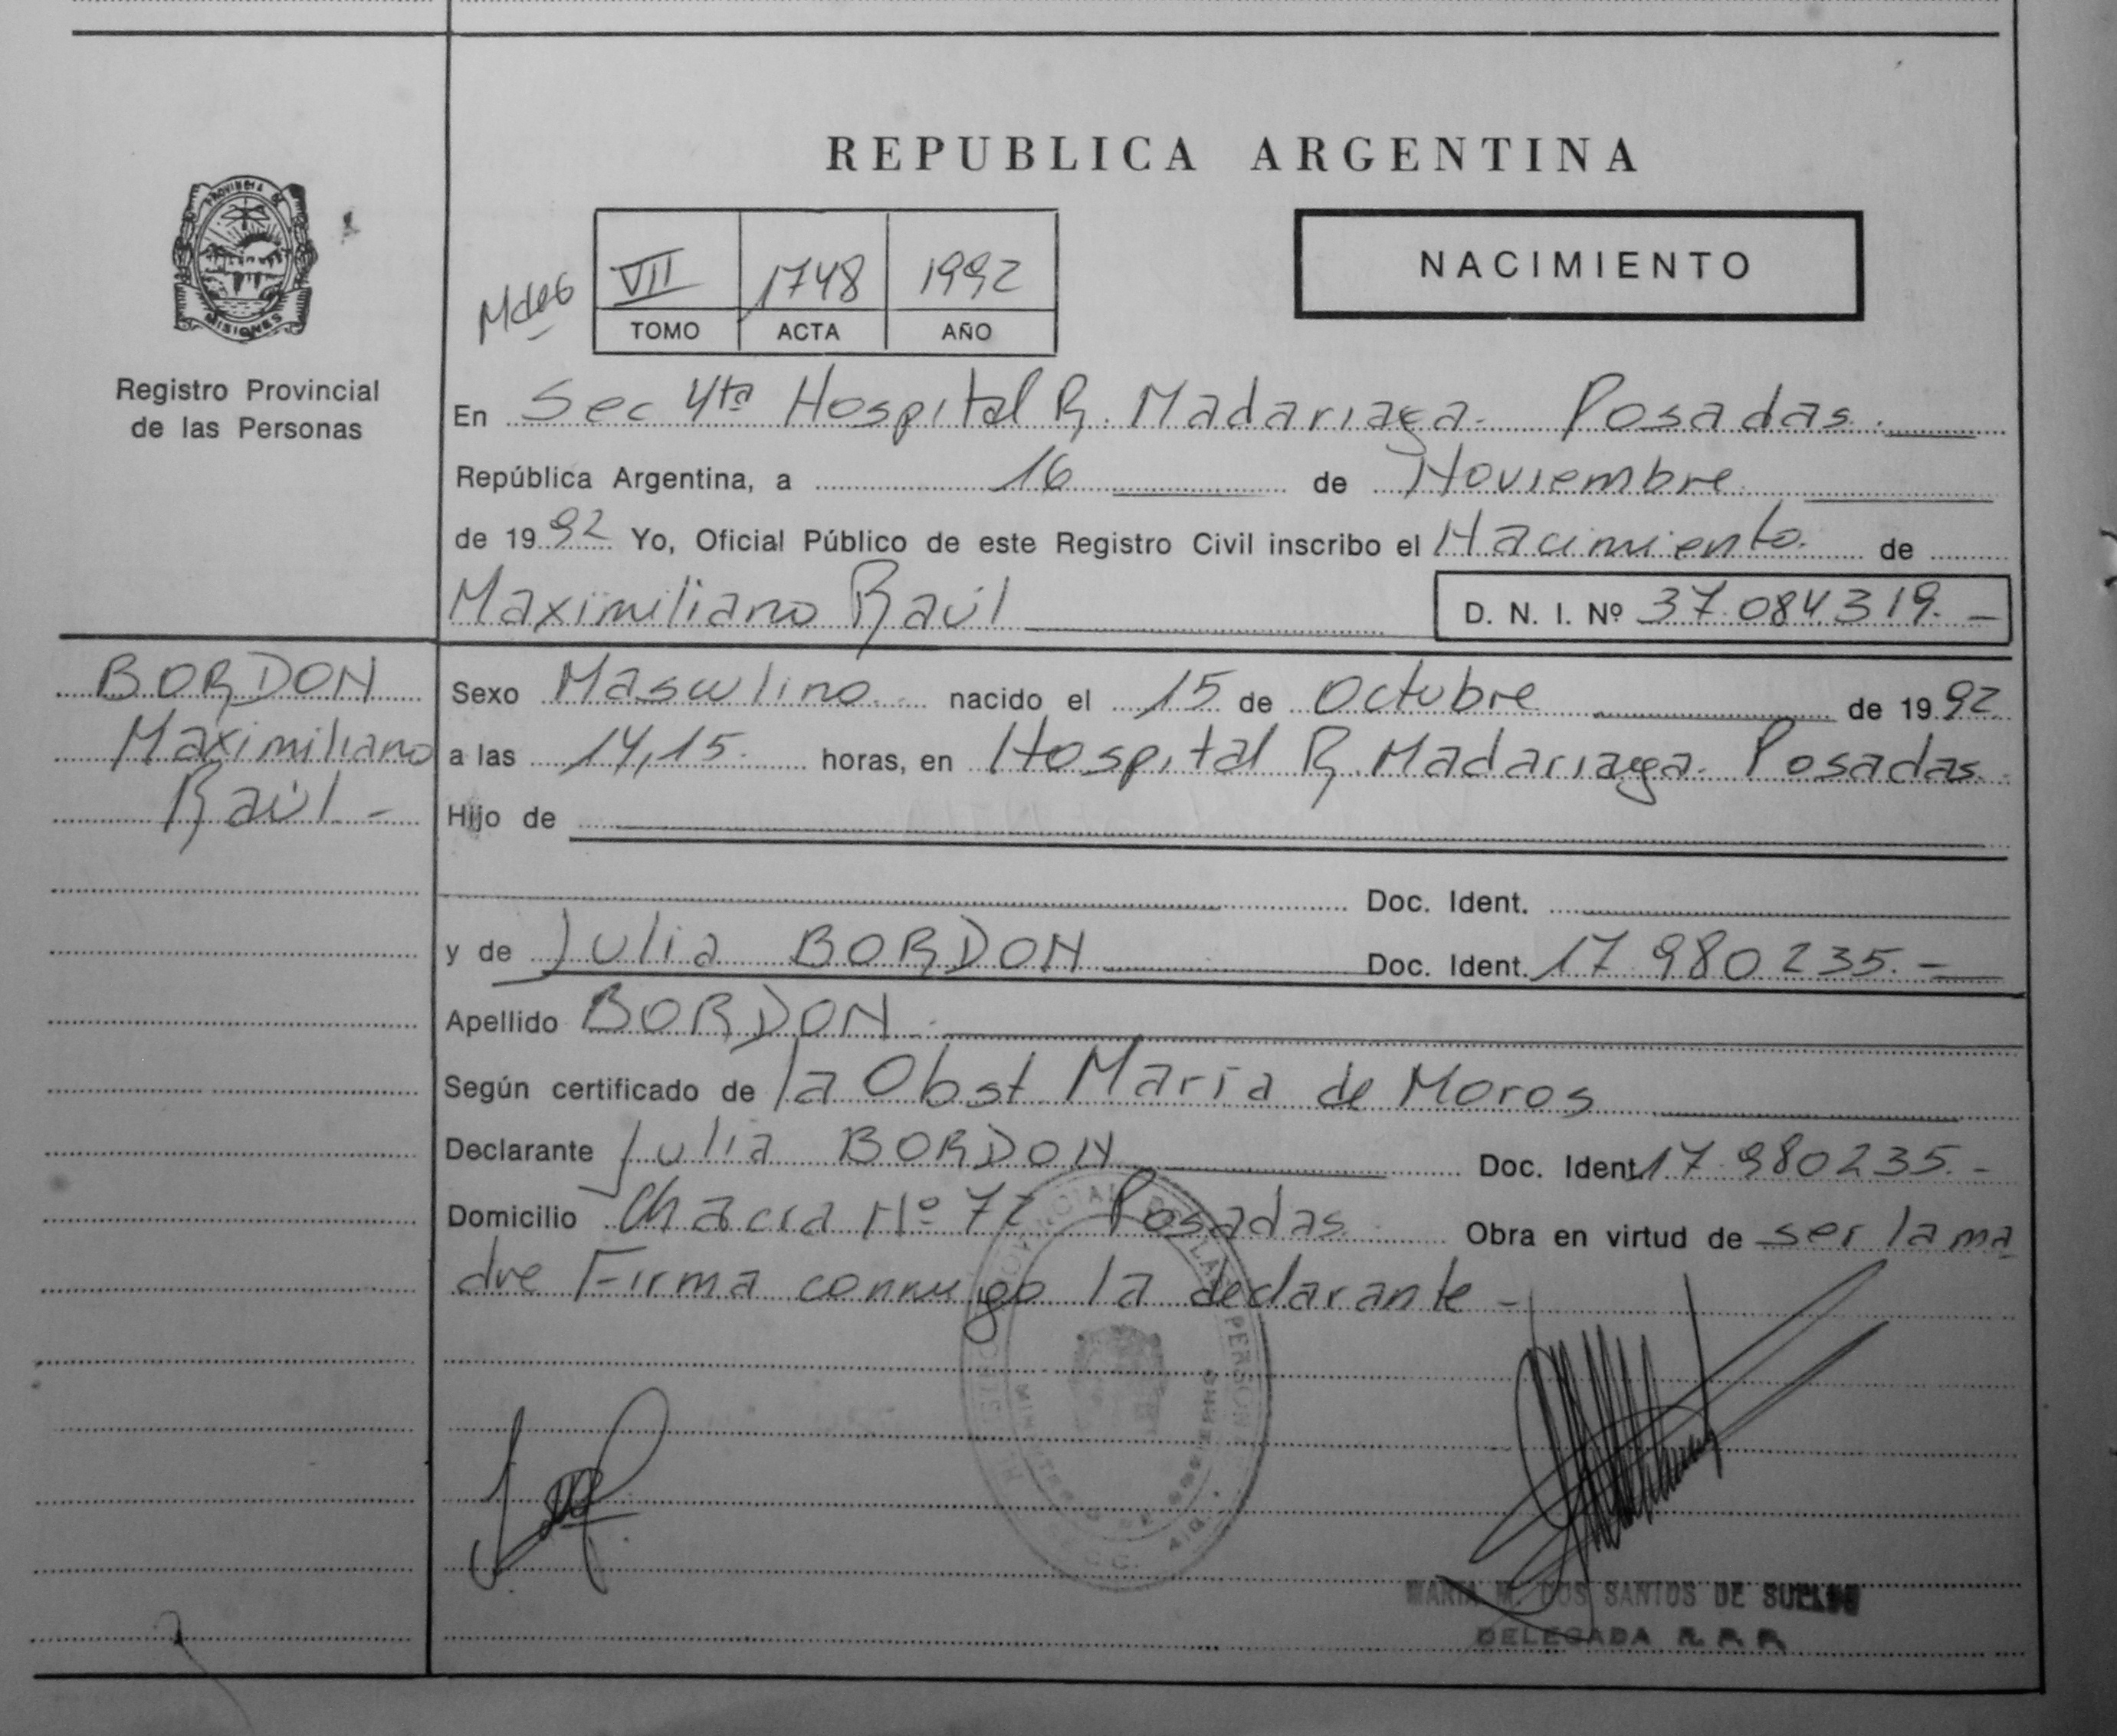 PROVINCIA DE
MISIONES
Registro Provincial
de las Personas
REPUBLICA ARGENTINA
VII 1748 1992
TOMO ACTA AÑO
NACIMIENTO
En Sec 4ta Hospital R. Madariaga. Posadas.
República Argentina, a 16 de Noviembre
de 1992 Yo, Oficial Público de este Registro Civil inscribo el Nacimiento. de
Maximiliano Raúl D. N. I. Nº 37.084319.-
BORDON
Maximiliano
Raúl.-
Sexo Masculino. nacido el 15 de Octubre de 1992
a las 14,15. horas, en Hospital R. Madariaga. Posadas.
Hijo de
Doc. Ident.
y de Julia BORDON Doc. Ident. 17.980235.-
Apellido BORDON.
Según certificado de la Obst María de Moros
Declarante Julia BORDON Doc. Ident. 17.980235.-
Domicilio Chacra Nº 72 Posadas. Obra en virtud de ser la ma
dre Firma conmigo la declarante -
MARIA M. DOS SANTOS DE
DELEGADA R. P. P.